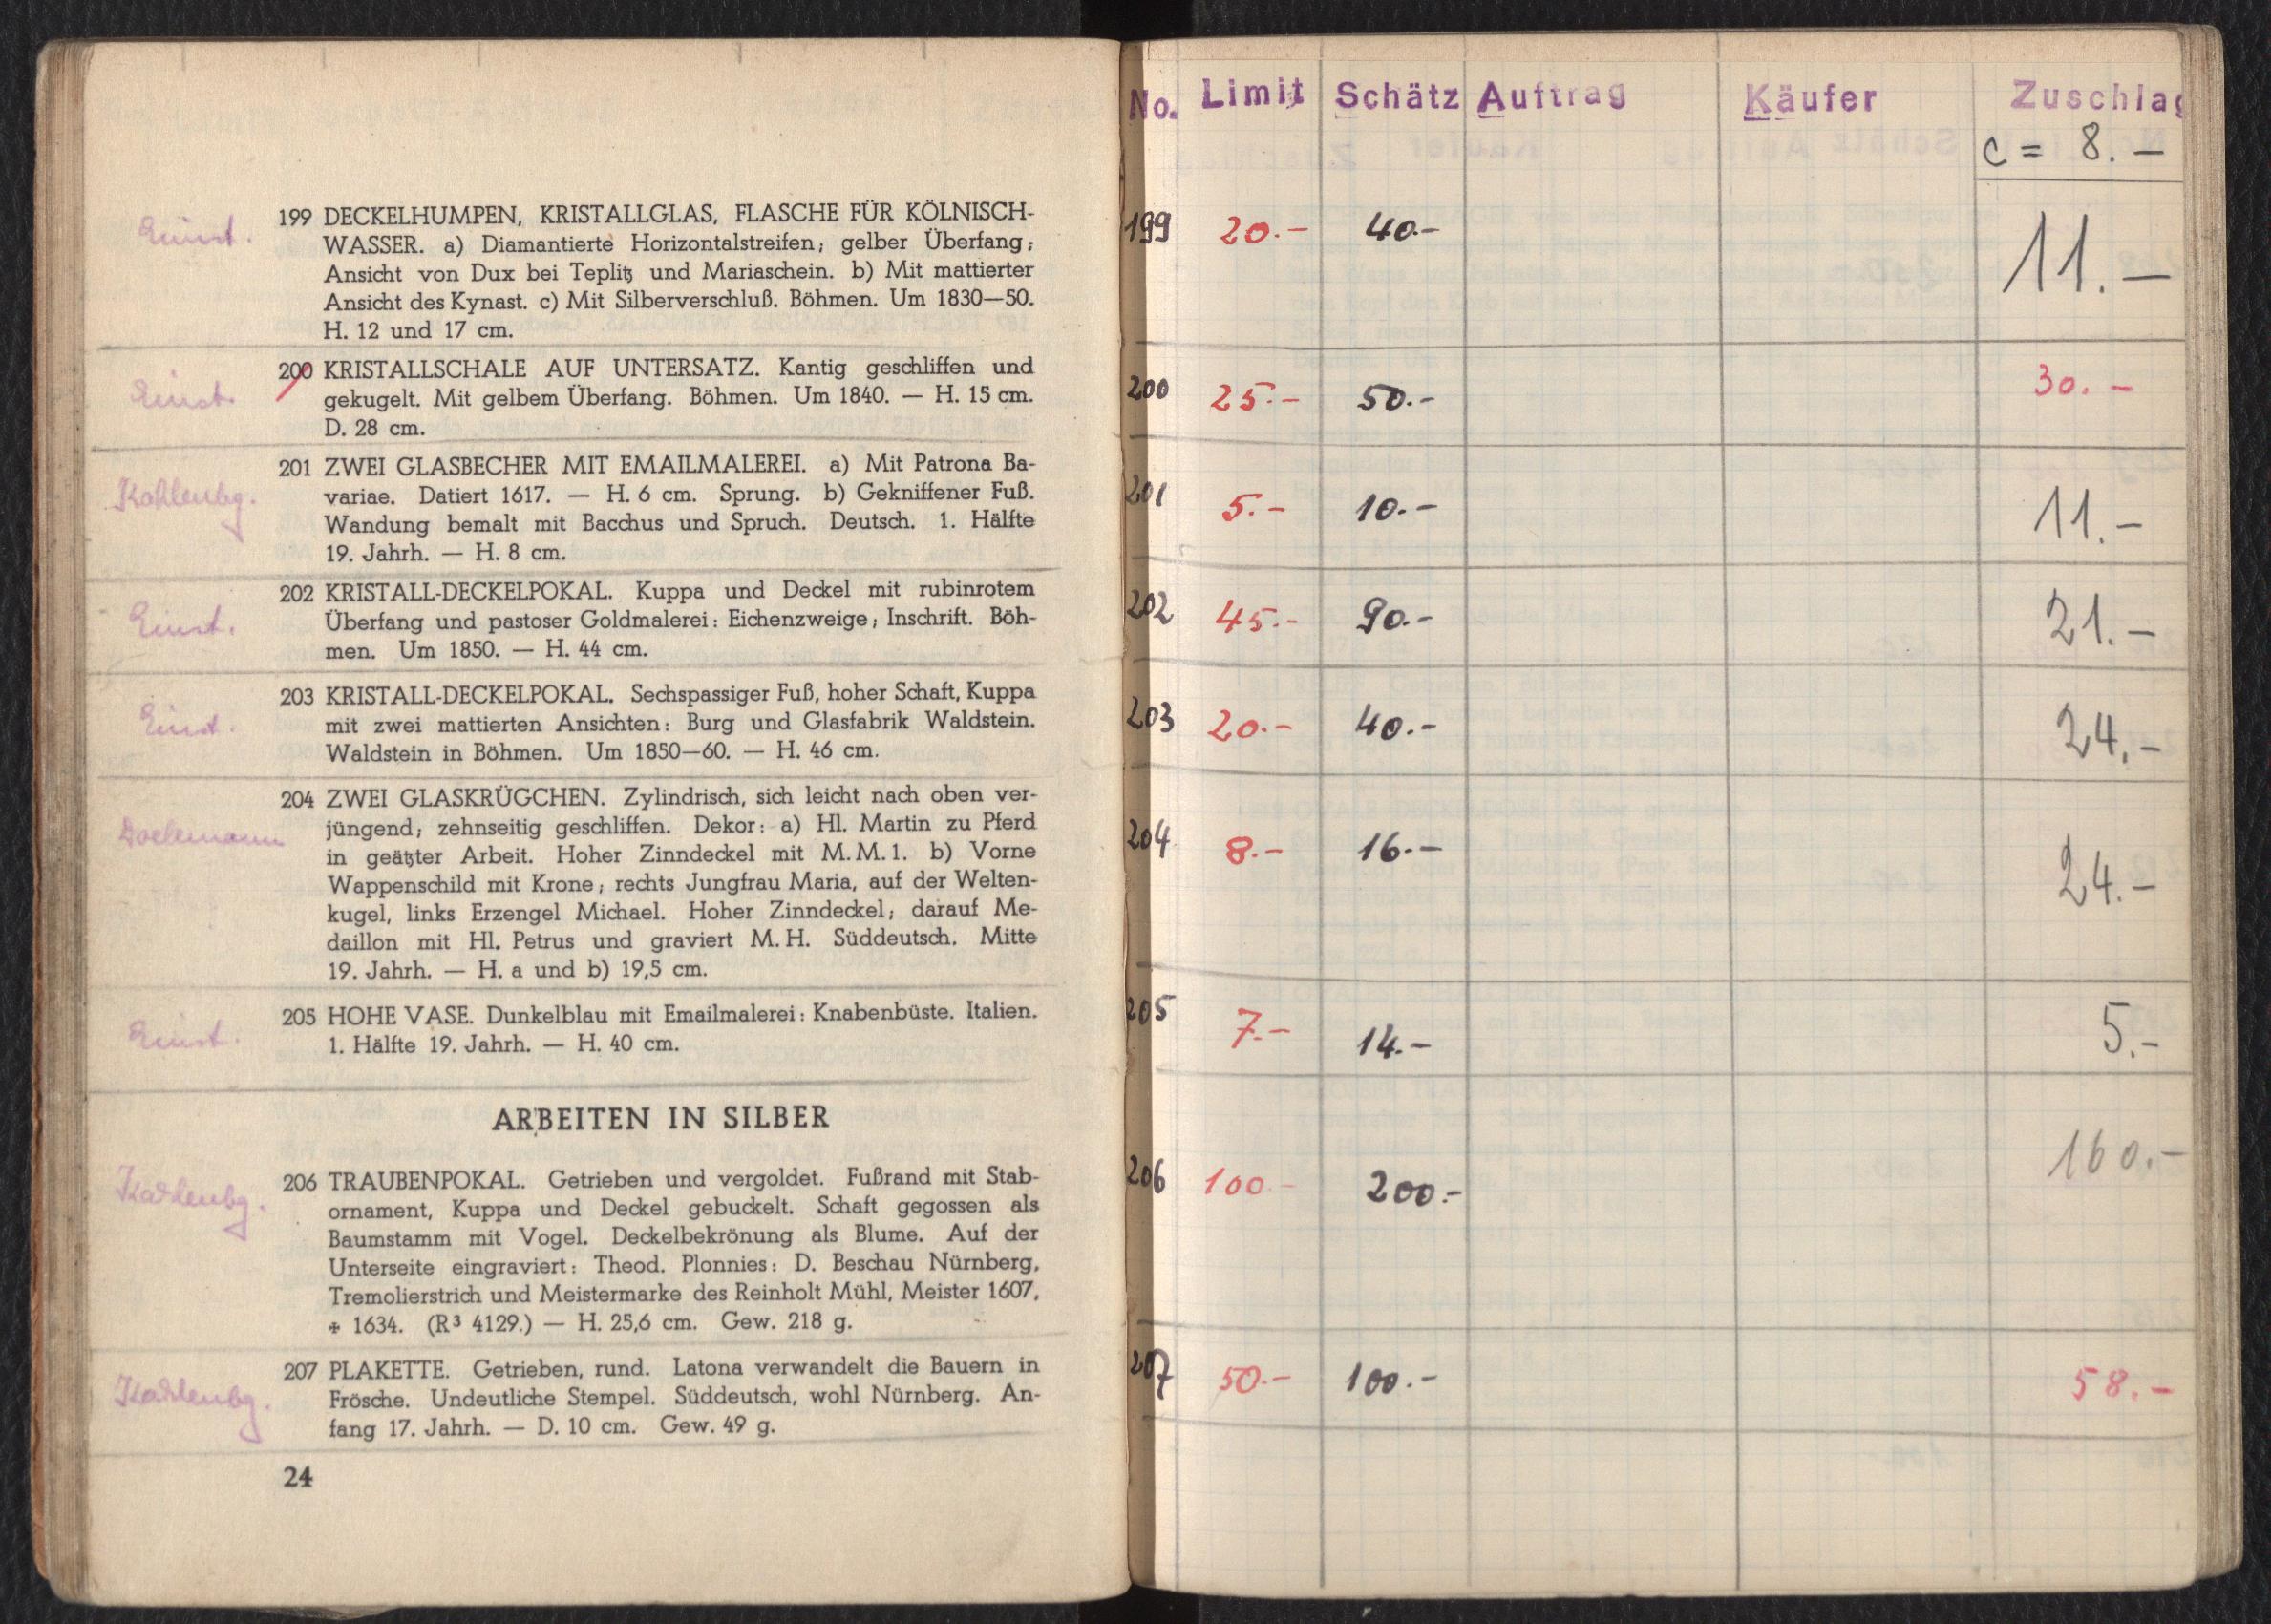 199 DECKELHUMPEN, KRISTALLGLAS, FLASCHE FÜR KÖLNISCH-
WASSER. a) Diamantierte Horizontalstreifen; gelber Überfang;
Ansicht von Dux bei Teplitz und Mariaschein. b) Mit mattierter
Ansicht des Kynast. c) Mit Silberverschluß. Böhmen. Um 1830—50.
H. 12 und 17 cm.
200 KRISTALLSCHALE AUF UNTERSATZ. Kantig geschliffen und
gekugelt. Mit gelbem Überfang. Böhmen. Um 1840. — H. 15 cm.
D. 28 cm.
Kahlenbg.
201 ZWEI GLASBECHER MIT EMAILMALEREI. a) Mit Patrona Ba-
variae. Datiert 1617. — H. 6 cm. Sprung. b) Gekniffener Fuß.
Wandung bemalt mit Bacchus und Spruch. Deutsch. 1. Hälfte
19. Jahrh. — H. 8 cm.
202 KRISTALL-DECKELPOKAL. Kuppa und Deckel mit rubinrotem
Überfang und pastoser Goldmalerei: Eichenzweige; Inschrift. Böh-
men. Um 1850. — H. 44 cm.
203 KRISTALL-DECKELPOKAL. Sechspassiger Fuß, hoher Schaft, Kuppa
mit zwei mattierten Ansichten: Burg und Glasfabrik Waldstein.
Waldstein in Böhmen. Um 1850—60. — H. 46 cm.
Doelemann
204 ZWEI GLASKRÜGCHEN. Zylindrisch, sich leicht nach oben ver-
jüngend; zehnseitig geschliffen. Dekor: a) Hl. Martin zu Pferd
in geätzter Arbeit. Hoher Zinndeckel mit M. M. 1. b) Vorne
Wappenschild mit Krone; rechts Jungfrau Maria, auf der Welten-
kugel, links Erzengel Michael. Hoher Zinndeckel; darauf Me-
daillon mit Hl. Petrus und graviert M. H. Süddeutsch. Mitte
19. Jahrh. — H. a und b) 19,5 cm.
205 HOHE VASE. Dunkelblau mit Emailmalerei: Knabenbüste. Italien.
1. Hälfte 19. Jahrh. — H. 40 cm.
ARBEITEN IN SILBER
Kahlenbg.
206 TRAUBENPOKAL. Getrieben und vergoldet. Fußrand mit Stab-
ornament, Kuppa und Deckel gebuckelt. Schaft gegossen als
Baumstamm mit Vogel. Deckelbekrönung als Blume. Auf der
Unterseite eingraviert: Theod. Plonnies: D. Beschau Nürnberg,
Tremolierstrich und Meistermarke des Reinholt Mühl, Meister 1607,
✠ 1634. (R³ 4129.) — H. 25,6 cm. Gew. 218 g.
Kahlenbg.
207 PLAKETTE. Getrieben, rund. Latona verwandelt die Bauern in
Frösche. Undeutliche Stempel. Süddeutsch, wohl Nürnberg. An-
fang 17. Jahrh. — D. 10 cm. Gew. 49 g.
24
No. Limit Schätz Auftrag Käufer Zuschlag
c = 8.—
199 20.- 40.- 11.—
200 25.- 50.- 30.-
201 5.- 10.- 11.-
202 45.- 90.- 21.-
203 20.- 40.- 24.-
204 8.- 16.- 24.-
205 7.- 14.- 5.-
206 100.- 200.- 160.-
207 50.- 100.- 58.-